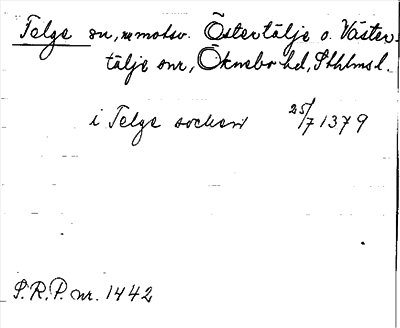 Telge sn, nmotsv. Östertälje o. Väster-
tälje snr, Öknebo hd, Sthlms l.
i Telge socken 25/7 1379
S.R.P. nr. 1442